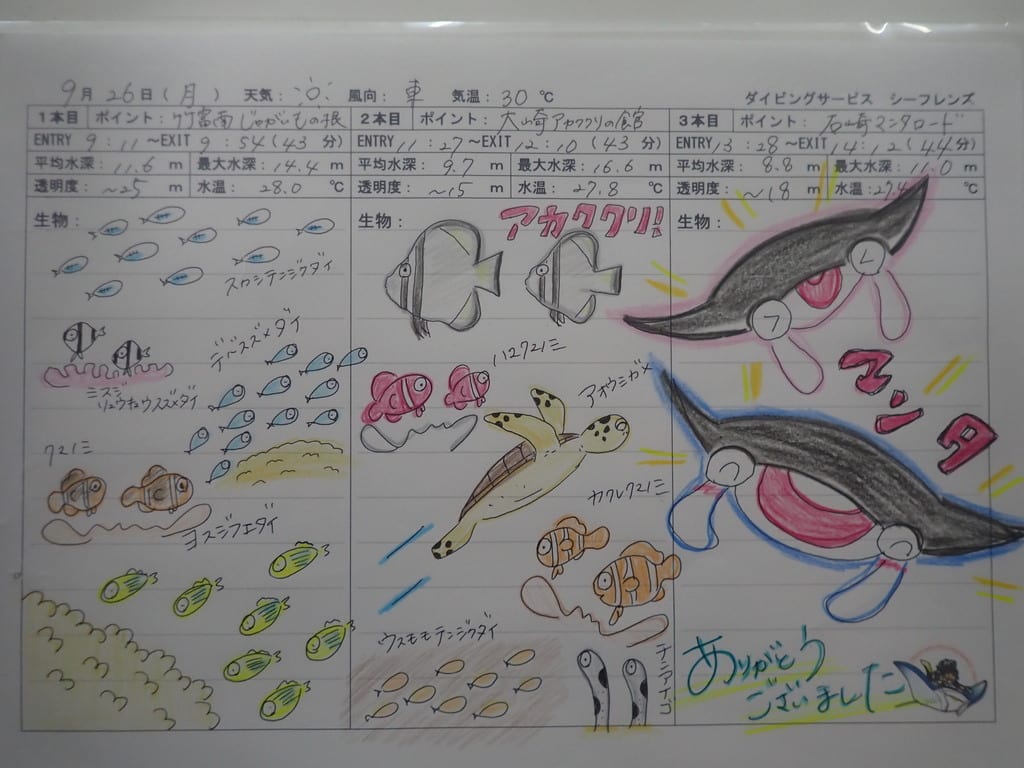 9月 26日(月) 天気: 風向: 東 気温: 30℃ ダイビングサービス シーフレンズ
1本目 ポイント: 竹富南じゃがいもの根
ENTRY 9:11 ~EXIT 9:54 (43分)
平均水深: 11.6 m 最大水深: 14.4 m
透明度: ~25 m 水温: 28.0 ℃
生物:
スカシテンジクダイ
デバスズメダイ
ミスジ
リュウキュウスズメダイ
クマノミ
ヨスジフエダイ
2本目 ポイント: 大崎アカククリの館
ENTRY 11:27 ~EXIT 12:10 (43分)
平均水深: 9.7 m 最大水深: 16.6 m
透明度: ~15 m 水温: 27.8 ℃
生物:
アカククリ!
ハマクマノミ
アオウミガメ
カクレクマノミ
ウスモモテンジクダイ
チンアナゴ
3本目 ポイント: 石崎マンタロード
ENTRY 13:28 ~EXIT 14:12 (44分)
平均水深: 8.8 m 最大水深: 11.0 m
透明度: ~18 m 水温: 27.4 ℃
生物:
マンタ
ありがとう
ございました